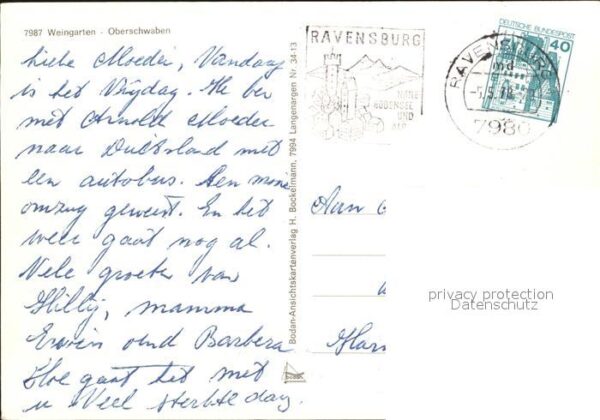 7987 Weingarten - Oberschwaben
Liebe Moeder, Vandaag
is het Vrijdag. Ik ber
met Arnold Moeder
naar Duitsland met
een autobus. Een mooi
omzug geweest. En het
weer gaat nog al.
Vele groeten van
Hilly, mamma
Erwin und Barbera
Hoe gaat het met
u Veel sterkte dag.
Bodan-Ansichtskartenverlag H. Bockelmann, 7994 Langenargen Nr. 34-13
RAVENSBURG
BODENSEE
UND
DEUTSCHE BUNDESPOST
40
RAVENSBURG
md
7980
Aan
privacy protection
Datenschutz